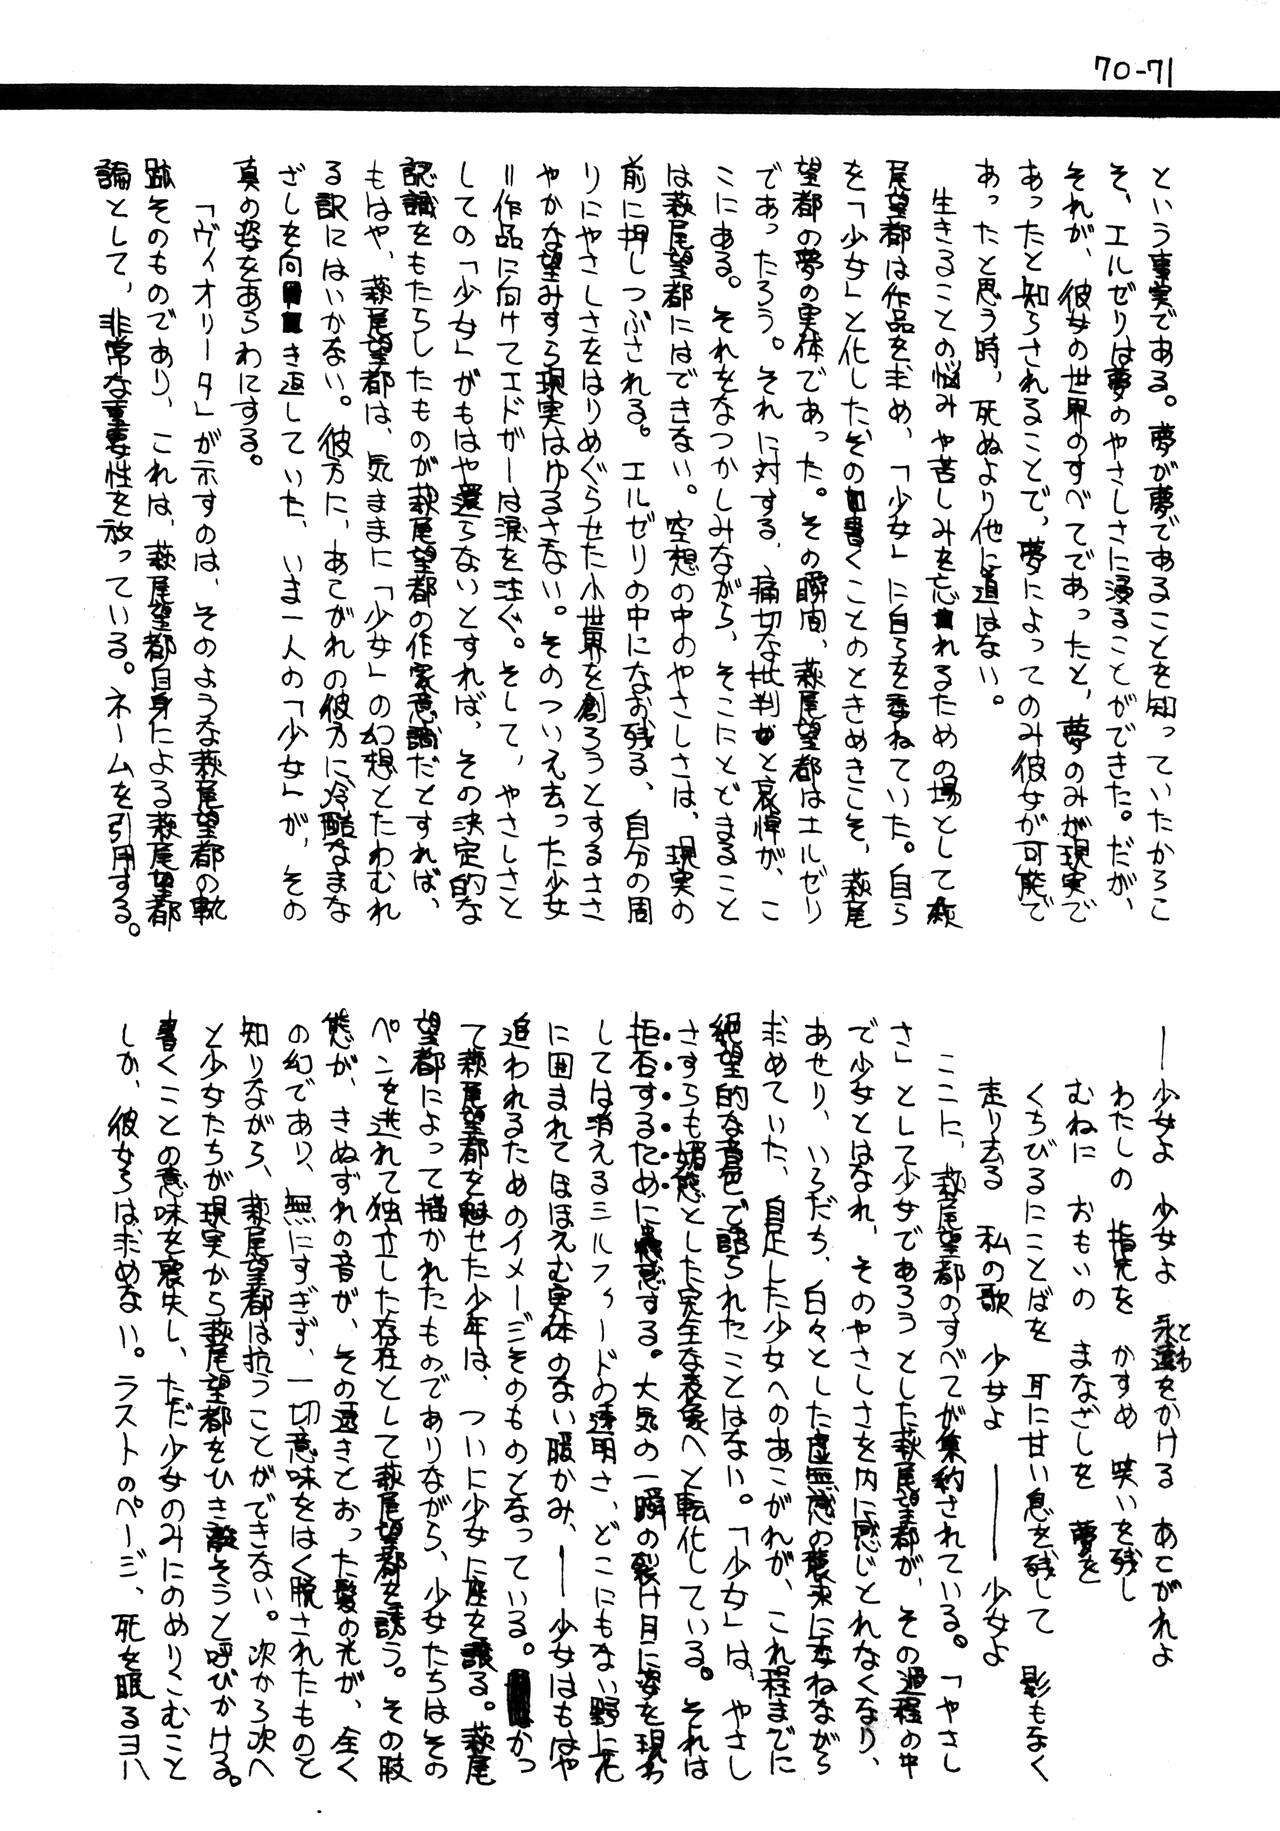 70-71
という事実である。夢が夢であることを知っていたからこ
そ、エルゼリは夢のやさしさに浸ることができた。だが、
それが、彼女の世界のすべてであったと、夢のみが現実で
あったと知らされることで、夢によってのみ彼女が可能で
あったと思う時、死ぬより他に道はない。
生きることの悩みや苦しみを忘れるための場として萩
尾望都は作品を求め、「少女」に自らを委ねていた。自ら
を「少女」と化したその書くことのときめきこそ、萩尾
望都の夢の実体であった。その瞬間、萩尾望都はエルゼリ
であったろう。それに対する、痛切な批判と哀悼が、こ
こにある。それをなつかしみながら、そこにとどまること
は萩尾望都にはできない。空想の中のやさしさは、現実の
前に押しつぶされる。エルゼリの中になお残る、自分の周
りにやさしさをはりめぐらせた小世界を創ろうとするささ
やかな望みすら現実はゆるさない。そのついえ去った少女
＝作品に向けてエドガーは涙を注ぐ。そして、やさしさと
しての「少女」がもはや還らないとすれば、その決定的な
認識をもたらしたものが萩尾望都の作家意識だとすれば、
もはや、萩尾望都は、気ままに「少女」の幻想とたわむれ
る訳にはいかない。彼方に、あこがれの彼方に冷酷なまな
ざしを向き返していた、いま一人の「少女」が、その
真の姿をあらわにする。
「ヴィオリータ」が示すのは、そのような萩尾望都の軌
跡そのものであり、これは、萩尾望都自身による萩尾望都
論として、非常な重要性を放っている。ネームを引用する。
―少女よ　少女よ　永遠をかける　あこがれよ
とわ
わたしの　指先を　かすめ　笑いを残し
むねに　おもいの　まなざしを　夢を
くちびるにことばを　耳に甘い息を残して　影もなく
走り去る　私の歌　少女よ　――　少女よ
ここに、萩尾望都のすべてが集約されている。「やさし
さ」として少女であろうとした萩尾望都が、その過程の中
で少女とはなれ、そのやさしさを内に感じとれなくなり、
あせり、いらだち、白々とした虚無感の襲来に委ねながら
求めていた、自足した少女へのあこがれが、これ程までに
絶望的な音色で語られたことはない。「少女」は、やさし
さすらも媚態とした完全な表象へと転化している。それは
拒否するために する。大気の一瞬の裂け目に姿を現わ
しては消えるシルフィードの透明さ、どこにもない野に花
に囲まれてほほえむ実体のない暖かみ、―少女はもはや
追われるためのイメージそのものとなっている。かつ
て萩尾望都を魅せた少年は、ついに少女に座を譲る。萩尾
望都によって描かれたものでありながら、少女たちはその
ペンを逃れて独立した存在として萩尾望都を誘う。その肢
態が、きぬずれの音が、その透きとおった髪の光が、全く
の幻であり、無にすぎず、一切意味をはく脱されたものと
知りながら、萩尾望都は抗うことができない。次から次へ
と少女たちが現実から萩尾望都をひき離そうと呼びかける。
書くことの意味を喪失し、ただ少女のみにのめりこむこと
しか、彼女らは求めない。ラストのページ、死を眠るヨハ